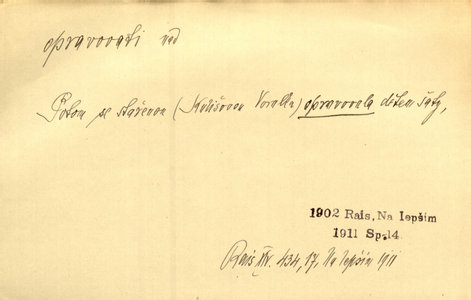 opravovati ned
Potom se stařenou (Kulišovou Voralka) opravovala dětem šaty,
1902 Rais, Na lepším
1911 Sp.14.
Rais XIV. 434, 17, Na lepším 1911